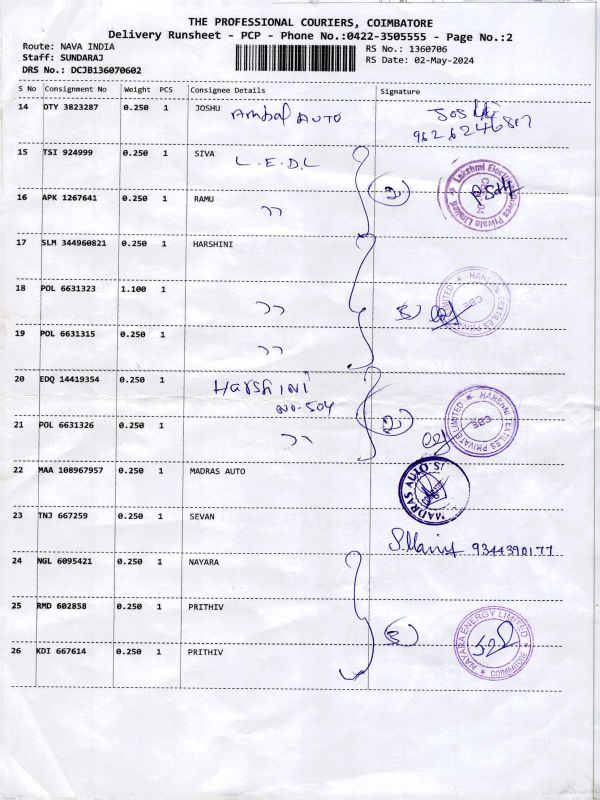 THE PROFESSIONAL COURIERS, COIMBATORE
Delivery Runsheet - PCP - Phone No.:0422-3505555 - Page No.:2
Route: NAVA INDIA
RS No.: 1360706
Staff: SUNDARAJ
RS Date: 02-May-2024
DRS No.: DCJB136070602
S No Consignment No Weight PCS Consignee Details Signature
14 DTY 3823287 0.250 1 JOSHU Ambal AUTO
9626246817
15 TSI 924999 0.250 1 SIVA L.E.D.L
Lakshmi Private Limited
16 APK 1267641 0.250 1 RAMU ,, 2
17 SLM 344960821 0.250 1 HARSHINI
HARSHNI TEXTILES PRIVATE LIMITED CBE
18 POL 6631323 1.100 1 ,, 3
19 POL 6631315 0.250 1 ,,
20 EDQ 14419354 0.250 1 Harshini
No-504
HARSHNI TEXTILES PRIVATE LIMITED CBE
21 POL 6631326 0.250 1 ,, 2
22 MAA 108967957 0.250 1 MADRAS AUTO
MADRAS AUTO
23 TNJ 667259 0.250 1 SEVAN
9344390177
24 NGL 6095421 0.250 1 NAYARA
25 RMD 602858 0.250 1 PRITHIV 3
NAYARA ENERGY LIMITED COIMBATORE
26 KDI 667614 0.250 1 PRITHIV